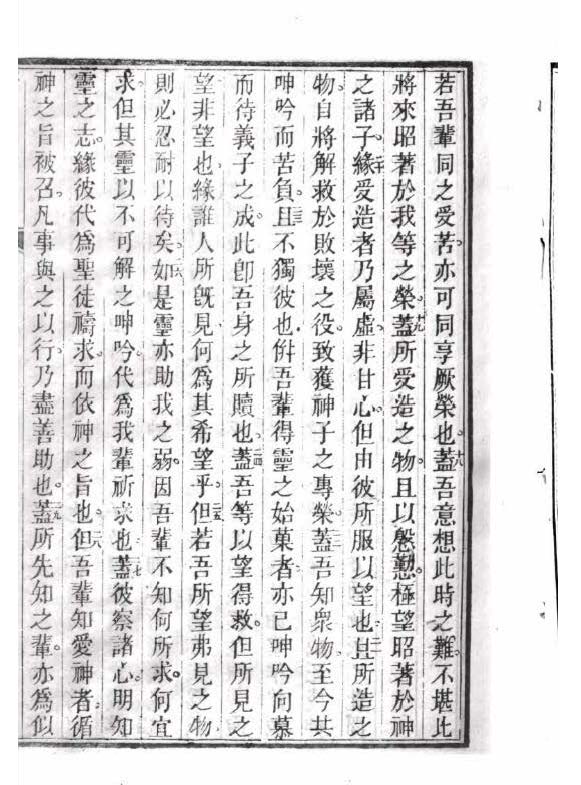 若吾輩同之受苦。亦可同享厥榮也。十八蓋吾意想此時之難。不堪比
將來昭著於我等之榮。十九蓋所受造之物。且以慇懃極望昭著於神
之諸子。二十緣受造者乃屬虛。非甘心。但由彼所服以望也。二一且所造之
物。自將解救於敗壞之役。致獲神子之專榮。二二蓋吾知衆物。至今共
呻吟而苦負。二三且不獨彼也。併吾輩得靈之始菓者。亦已呻吟向慕
而待義子之成。此卽吾身之所贖也。二四蓋吾等以望得救。但所見之
望非望也。緣誰人所旣見何爲其希望乎。二五但若吾所望弗見之物
則必忍耐以待矣。二六如是靈亦助我之弱。因吾輩不知何所求。何宜
求。但其靈以不可解之呻吟。代爲我輩祈求也。二七蓋彼察諸心。明知
靈之志。緣彼代爲聖徒禱求。而依神之旨也。二八但吾輩知愛神者。循
神之旨被召。凡事與之以行。乃盡善助也。二九蓋所先知之輩。亦爲似